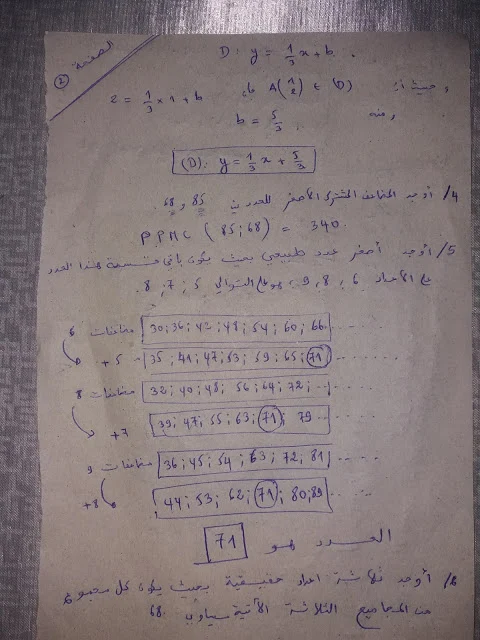 الصفحة 2
D: y = 1/3 x + b .
وحيث أن A(1/2) ∈ (D) فإن 2 = 1/3 × 1 + b
ومنه b = 5/3 .
(D): y = 1/3 x + 5/3
4/ أوجد المضاعف المشترك الأصغر للعددين 85 و 68.
PPMC (85; 68) = 340.
5/ أوجد أصغر عدد طبيعي بحيث يكون باقي قسمة هذا العدد
على الأعداد 6 , 8 , 9 , هو على التوالي 5 ; 7 ; 8.
مضاعفات 6 30; 36; 42; 48; 54; 60; 66 .....
+5 35; 41; 47; 53; 59; 65; 71 .....
مضاعفات 8 32; 40; 48; 56; 64; 72; ....
+7 39; 47; 55; 63; 71; 79 ....
مضاعفات 9 36; 45; 54; 63; 72; 81 .....
+8 44; 53; 62; 71; 80; 89 .....
العدد هو 71
6/ أوجد ثلاثة أعداد حقيقية بحيث يكون كل مجموع
من المجاميع الثلاثة الآتية يساوي 68